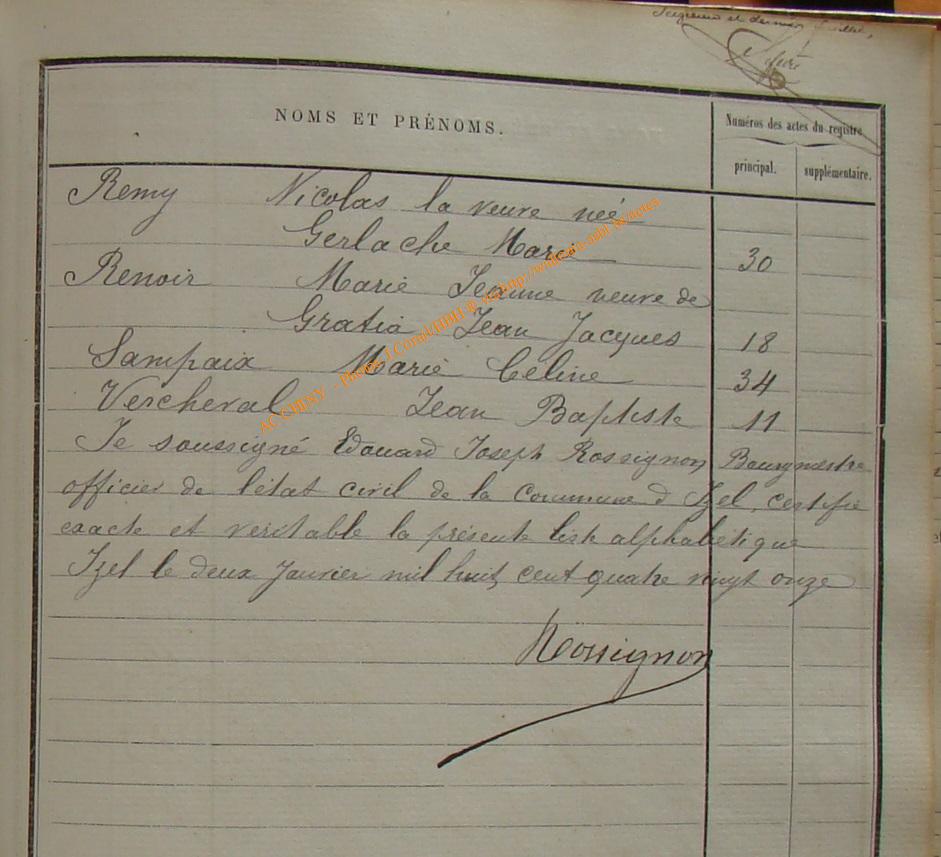 et dernier
NOMS ET PRÉNOMS.
Numéros des actes du registre
principal. supplémentaire.
Remy Nicolas la veuve née
Gerlache Marie 30
Renoir Marie Jeanne veuve de
Gratia Jean Jacques 18
Sampaix Marie Celine 34
Vercheval Jean Baptiste 11
Je soussigné Edouard Joseph Rossignon Bourgmestre
officier de l'état civil de la Commune d'Izel, certifie
exacte et veritable la présente liste alphabétique
Izel le deux Janvier mil huit cent quatre vingt onze
Rossignon